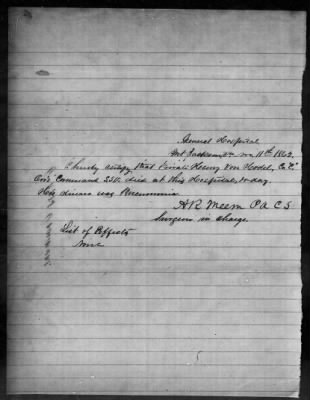 General Hospital
Mt Jackson Va 11th 1862.
I hereby certify that Private Henry Von Hodel, Co
Command died at this Hospital, to-day.
His disease was Pneumonia
A R Meem P A C S
Surgeon in Charge.
List of Effects
None